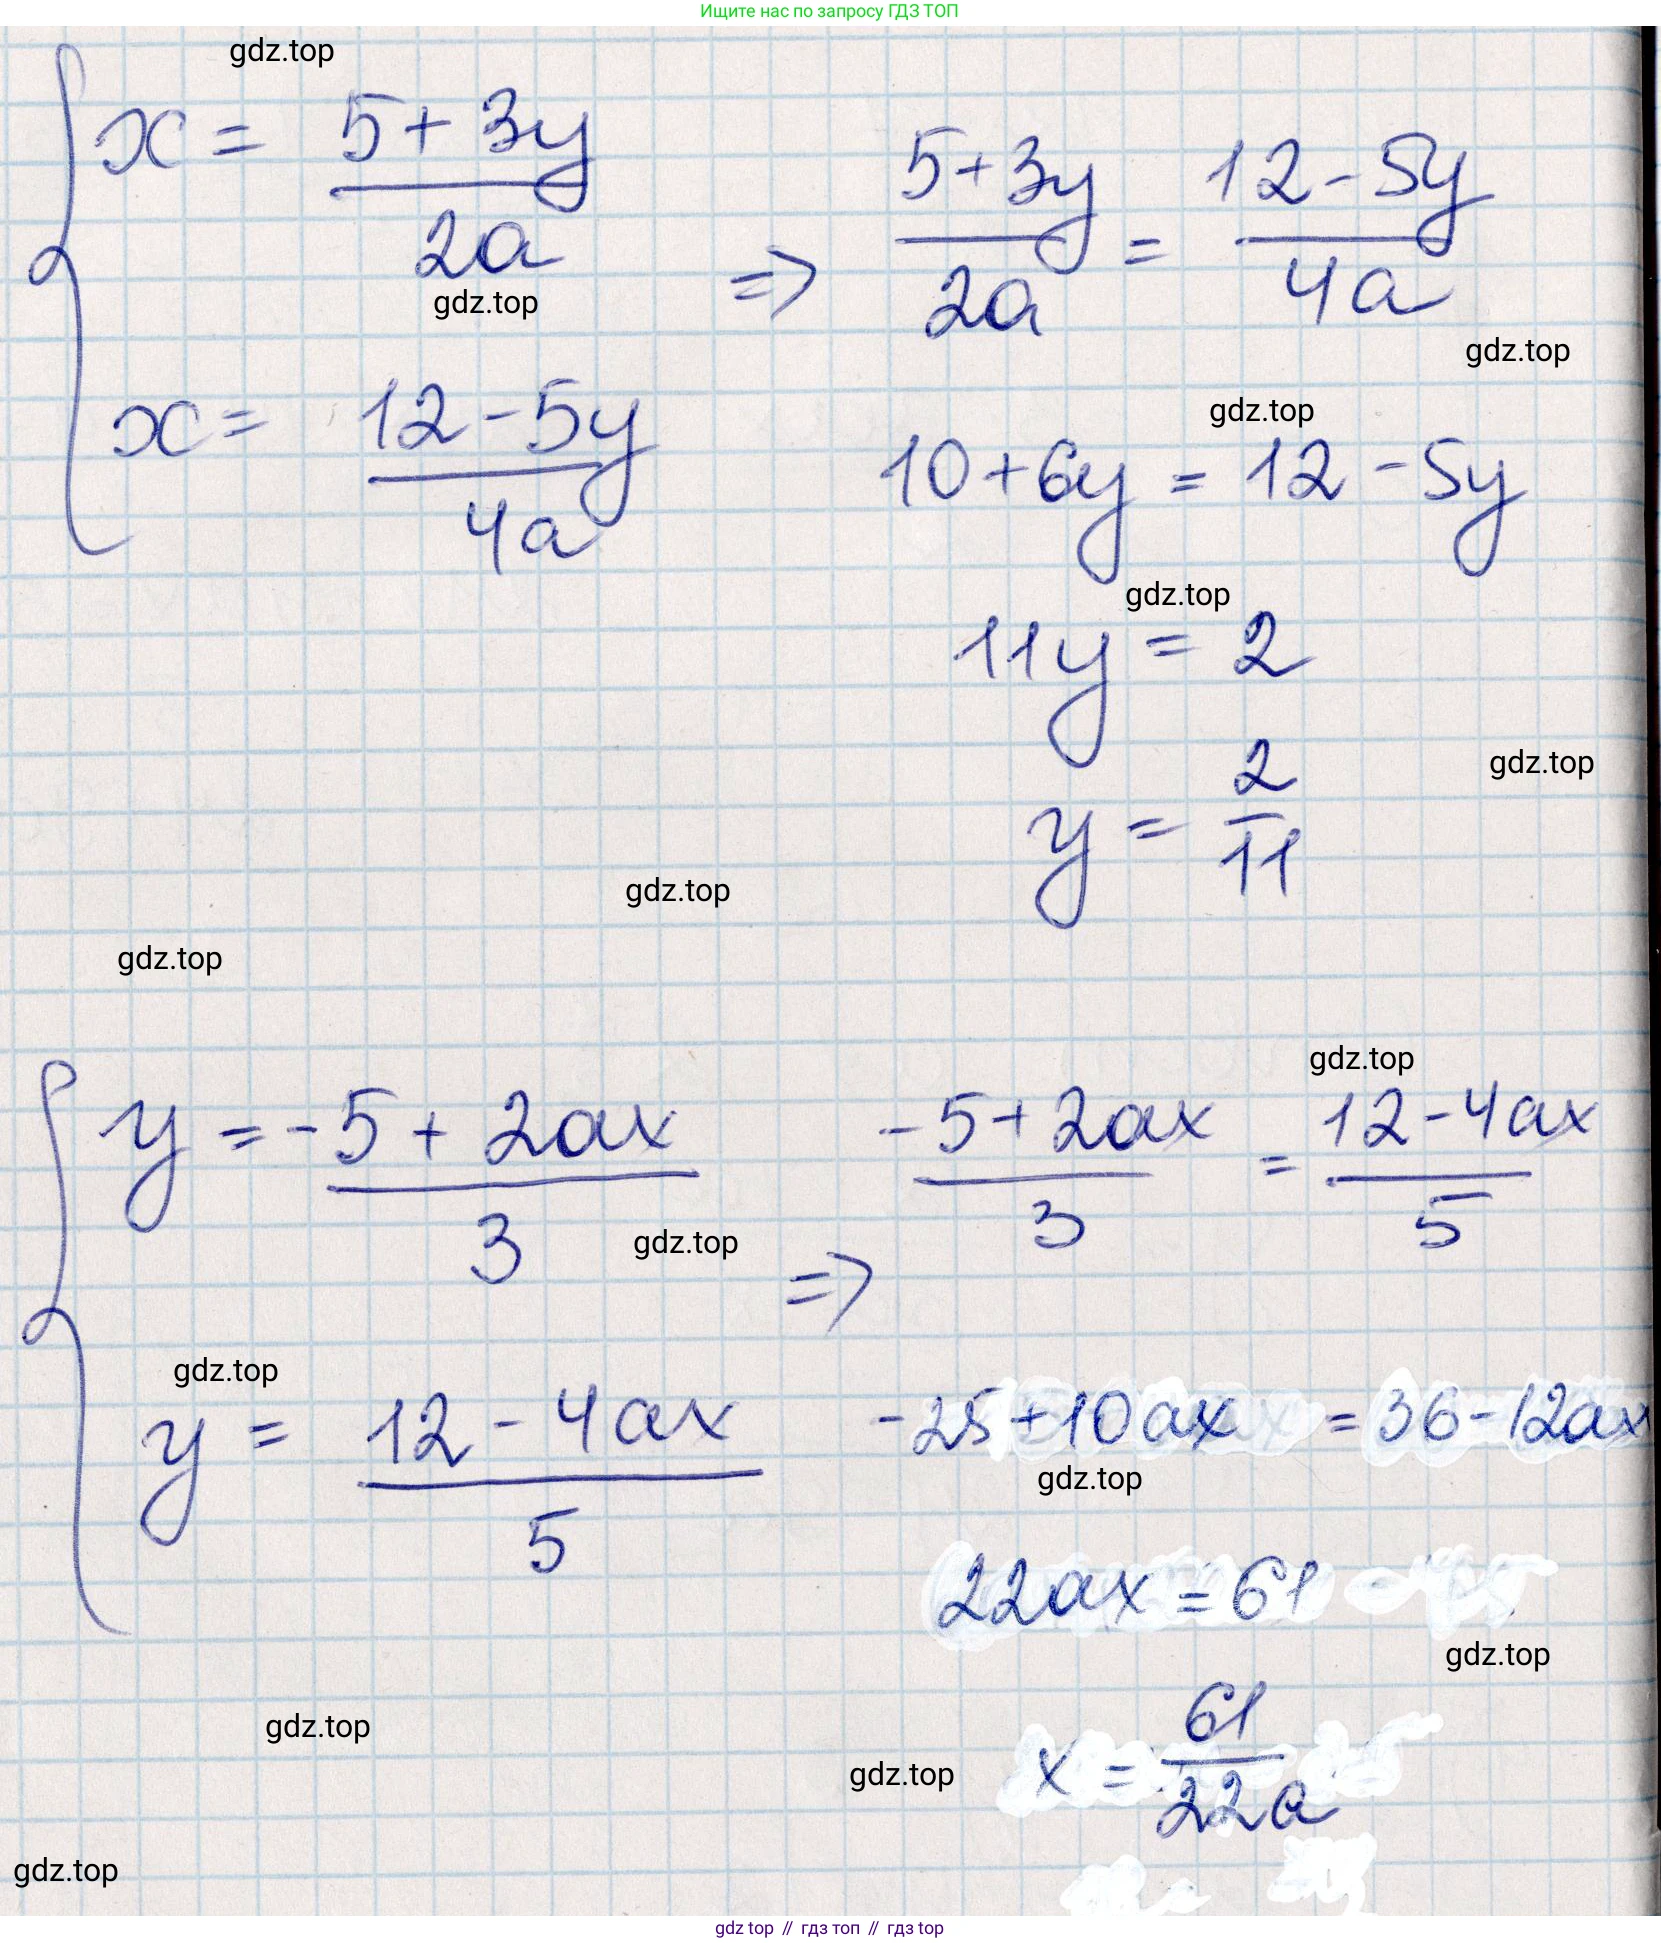 Ищите нас по запросу ГДЗ ТОП
gdz.top
x = 5 + 3y / 2a
gdz.top
x = 12 - 5y / 4a
=> 5 + 3y / 2a = 12 - 5y / 4a
gdz.top
gdz.top
10 + 6y = 12 - 5y
gdz.top
11y = 2
gdz.top
y = 2 / 11
gdz.top
gdz.top
gdz.top
y = -5 + 2ax / 3
gdz.top
gdz.top
y = 12 - 4ax / 5
=> -5 + 2ax / 3 = 12 - 4ax / 5
-25 + 10ax = 36 - 12ax
gdz.top
22ax = 61
gdz.top
gdz.top
x = 61 / 22a
gdz.top
gdz.top
gdz top // гдз топ // гдз top